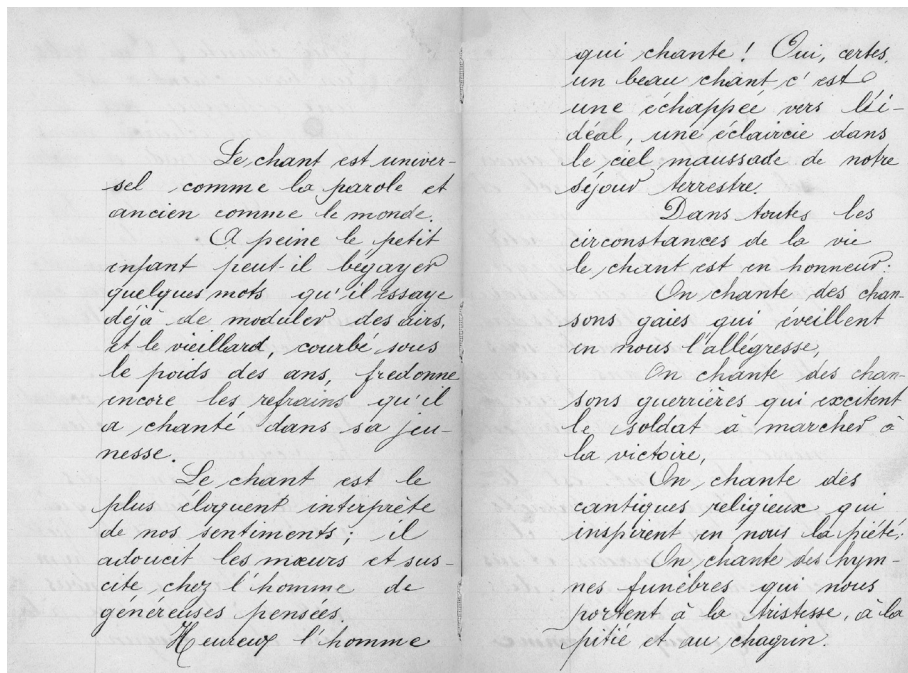 Le chant est univer-
sel comme la parole et
ancien comme le monde.
A peine le petit
enfant peut-il bégayer
quelques mots qu'il essaye
déjà de moduler des airs,
et le vieillard, courbé sous
le poids des ans, fredonne
encore les refrains qu'il
a chanté dans sa jeu-
nesse.
Le chant est le
plus éloquent interprète
de nos sentiments; il
adoucit les mœurs et sus-
cite chez l'homme de
généreuses pensées.
Heureux l'homme
qui chante! Oui, certes,
un beau chant c'est
une échappée vers l'i-
déal, une éclaircie dans
le ciel maussade de notre
séjour terrestre.
Dans toutes les
circonstances de la vie
le chant est en honneur:
On chante des chan-
sons gaies qui éveillent
en nous l'allégresse,
On chante des chan-
sons guerrières qui excitent
le soldat à marcher à
la victoire,
On chante des
cantiques religieux qui
inspirent en nous la piété;
On chante des hym-
nes funèbres qui nous
portent à la tristesse, à la
pitié et au chagrin.